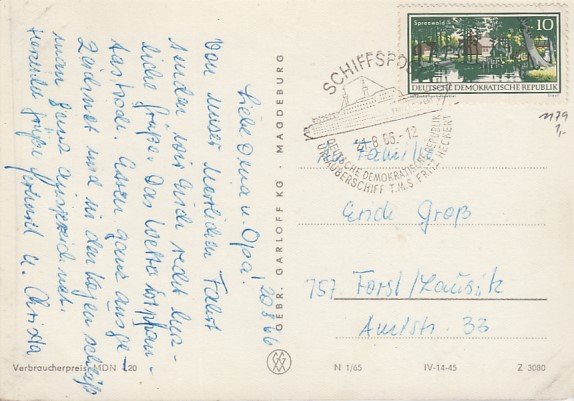 Liebe Oma u. Opa!
20.8.66
Von unser herrlichen Fahrt
senden wir Euch recht herz-
liche Grüße. Das Wetter ist
Essen ganz ausge-
zeichnet und in den
man ganz ausgezeichnet.
Herzliche Grüße u. Christa
GEBR. GARLOFF KG · MAGDEBURG
Verbraucherpreis MDN 0,20
Spreewald
10
DEUTSCHE DEMOKRATISCHE REPUBLIK
SCHIFFSPOST
21.8.66.-12
DEUTSCHE DEMOKRATISCHE REPUBLIK
URLAUBERSCHIFF T.M.S. FRITZ HECKERT
1179
1,-
Familie
Erich Groß
757 Forst/Lausitz
Amtstr. 33
N 1/65 IV-14-45 Z 3080